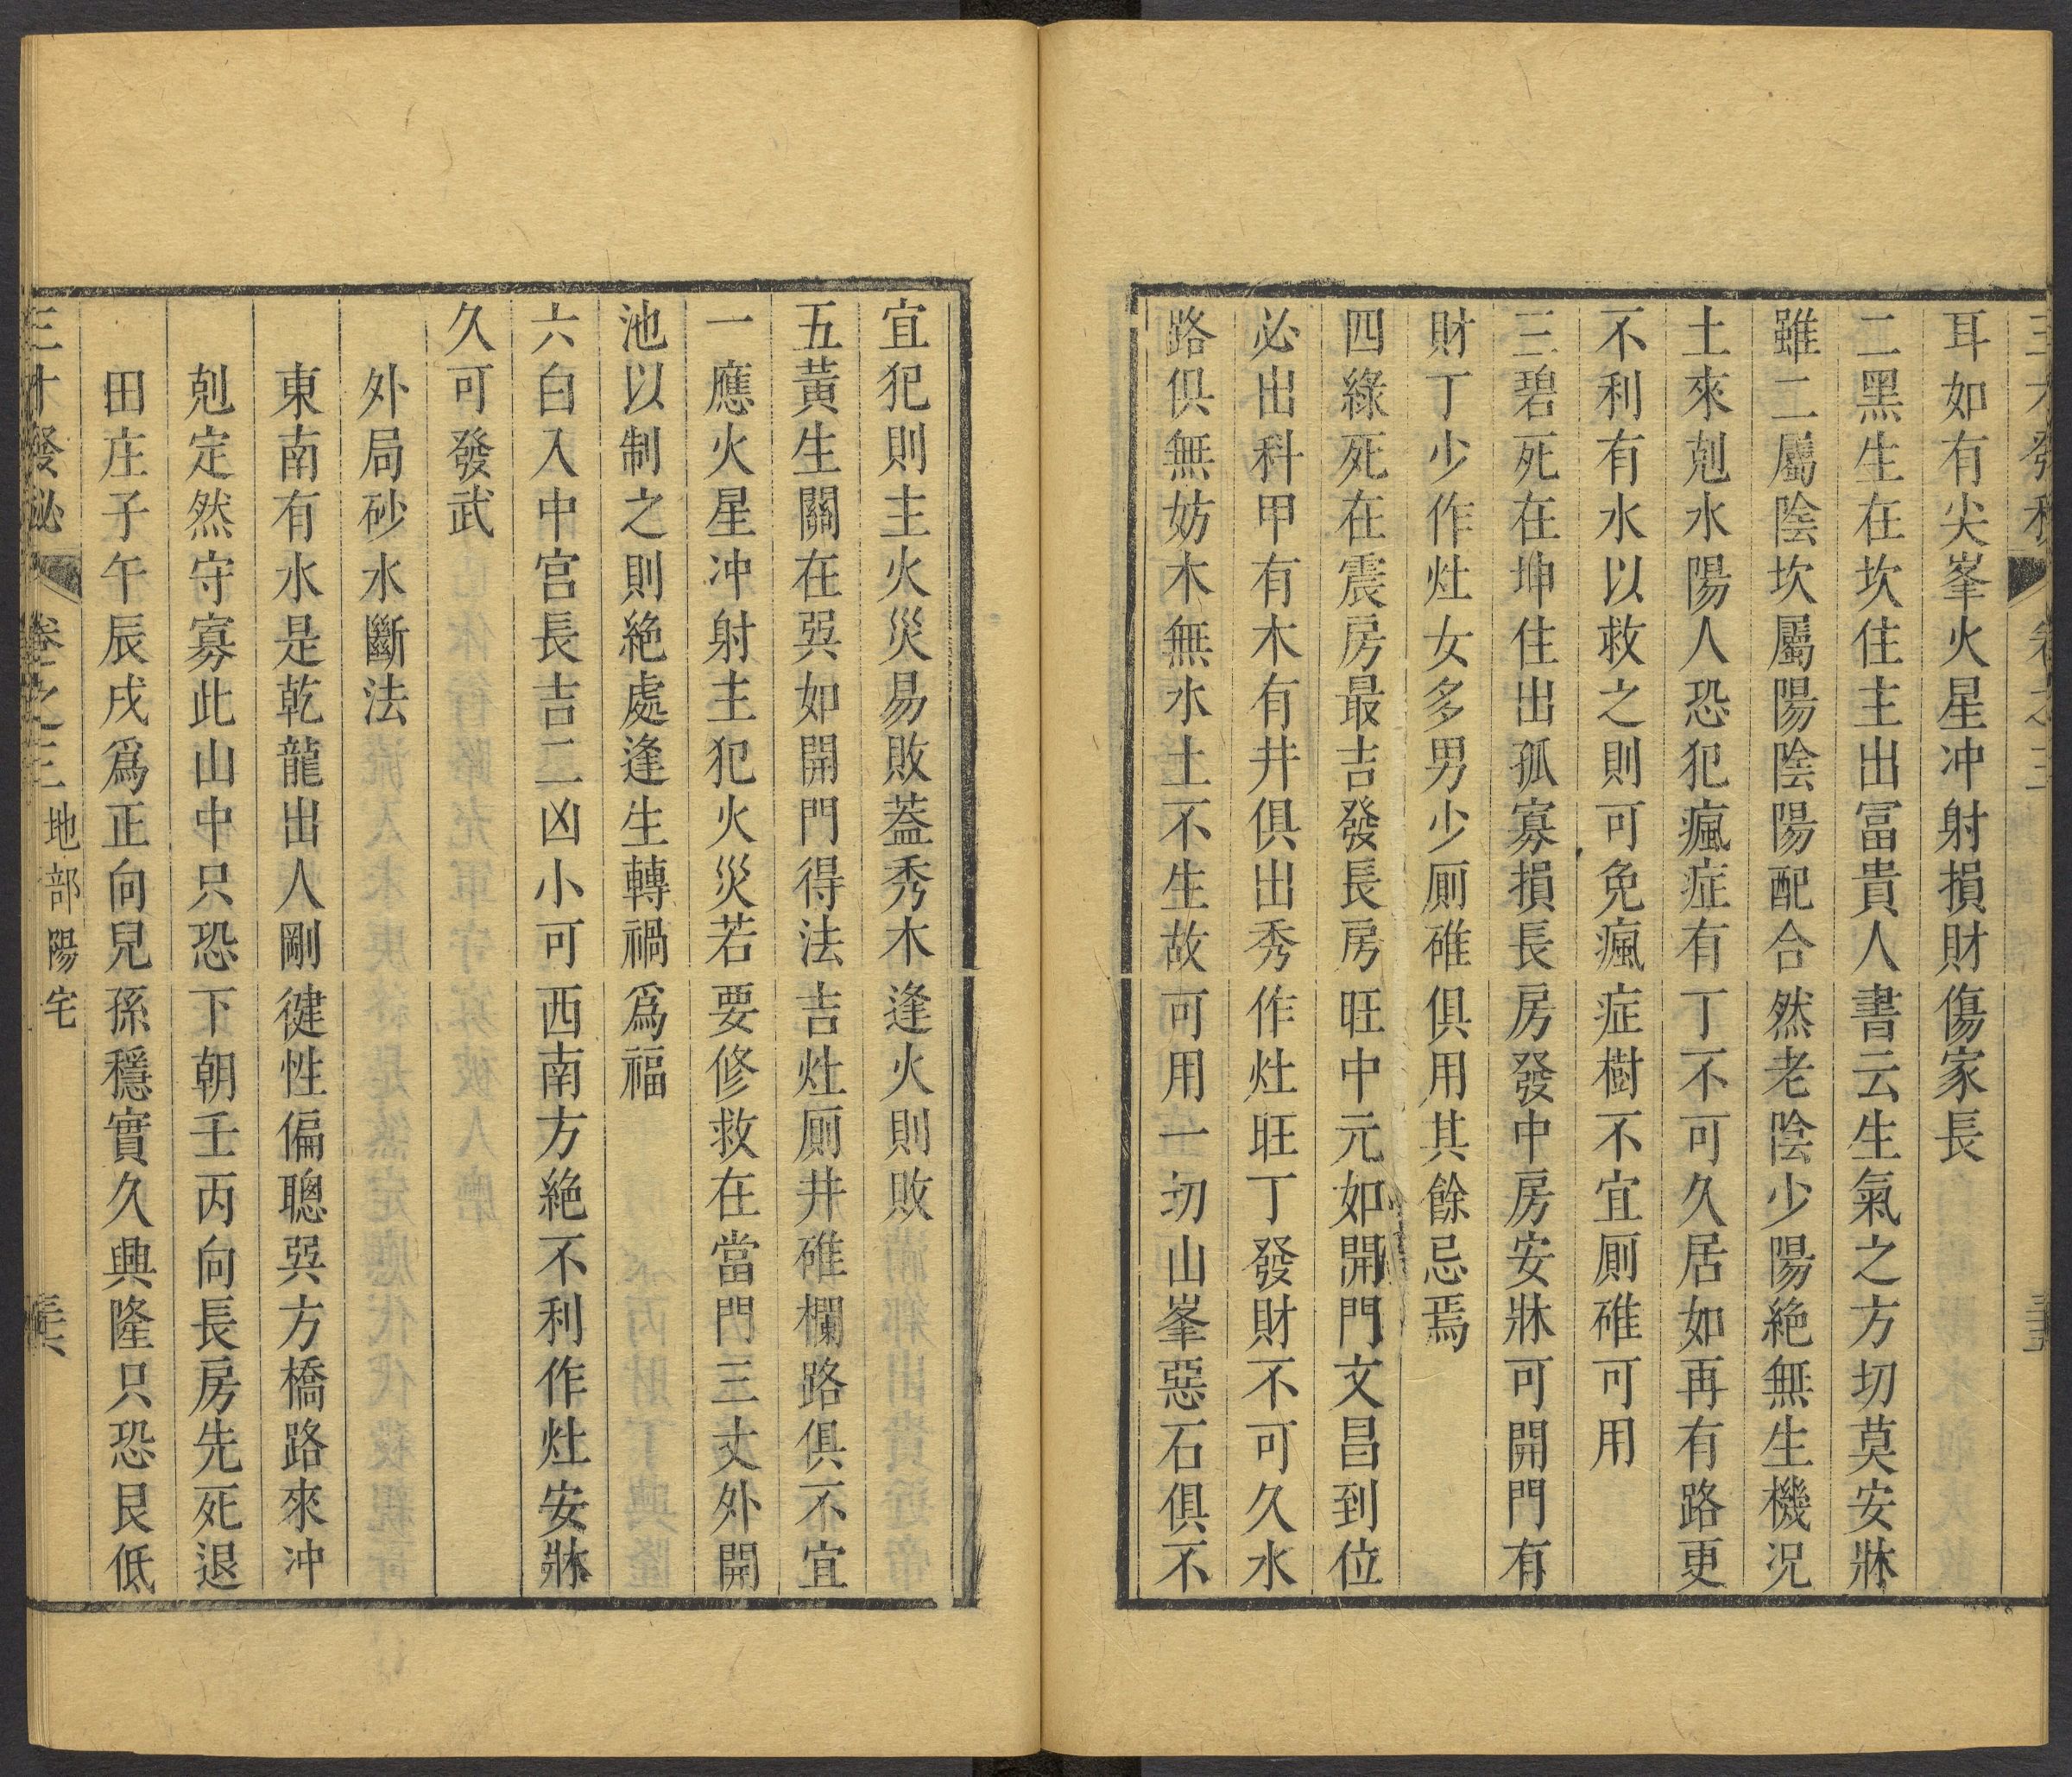 耳如有尖峯火星冲射損財傷家長
二黑生在坎住主出冨貴人書云生氣之方切莫安牀
雖二屬陰坎屬陽陰陽配合然老陰少陽絶無生機况
土來剋水陽人恐犯瘋症有丁不可久居如再有路更
不利有水以救之則可免瘋症樹不宜厠碓可用
三碧死在坤住出孤寡損長房發中房安牀可開門有
財丁少作灶女多男少厠碓俱用其餘忌焉
四綠死在震房最吉發長房旺中元如開門文昌到位
必出科甲有木有井俱出秀作灶旺丁發財不可久水
路俱無妨木無水土不生故可用一切山峯惡石俱不
宜犯則主火災易敗葢秀木逢火則敗
五黃生關在巽如開門得法吉灶厠井碓欄路俱不宜
一應火星冲射主犯火災若要修救在當門三丈外開
池以制之則絶處逢生轉禍爲福
六白入中宮長吉二凶小可西南方絶不利作灶安牀
久可發武
外局砂水斷法
東南有水是乾龍出人剛健性偏聰巽方橋路來冲
剋定然守寡此山中只恐下朝壬丙向長房先死退
田庄子午辰戌爲正向兒孫穩實久興隆只恐艮低
三才發秘 卷之三 地部陽宅